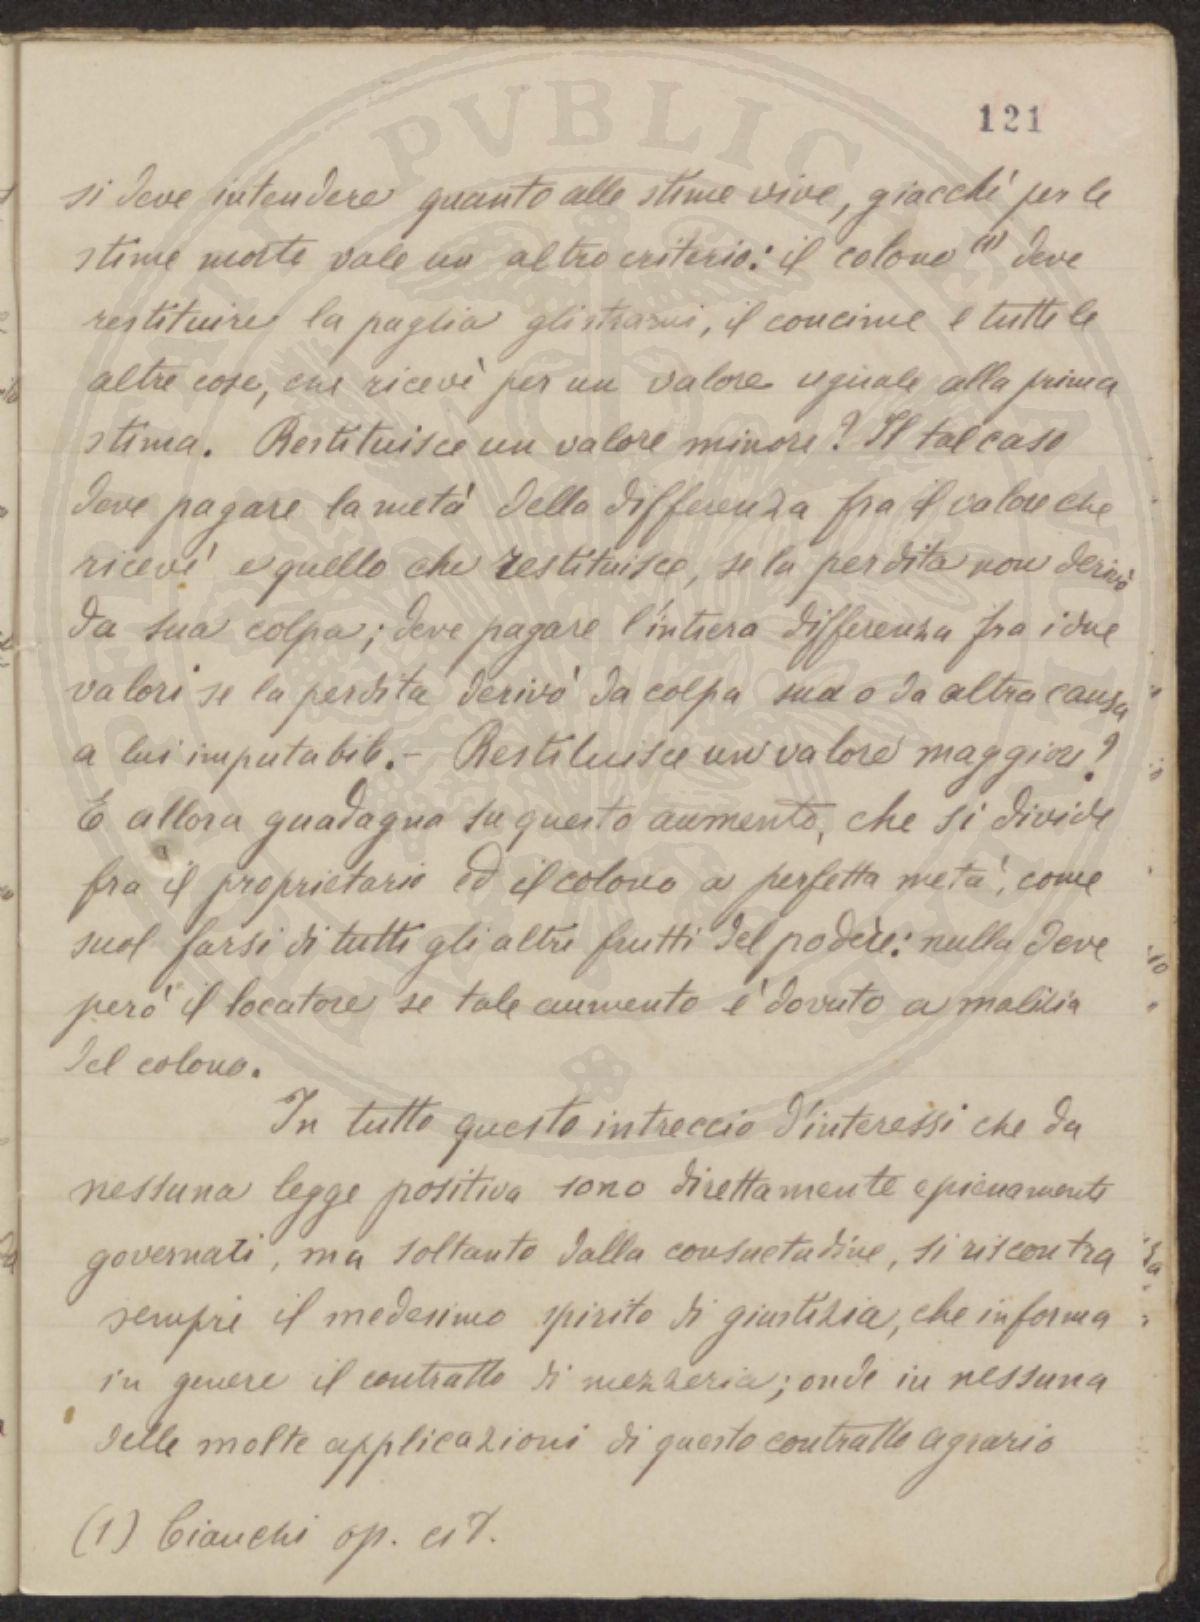 121
si deve intendere quanto alle stime vive, giacchè per le
stime morte vale un altro criterio: il colono (1) deve
restituire la paglia gli strami, il concime e tutte le
altre cose, che ricevè per un valore uguale alla prima
stima. Restituisce un valore minore? Il tal caso
deve pagare la metà della differenza fra il valore che
ricevè e quello che restituisce, se la perdita non derivò
da sua colpa; deve pagare l'intiera differenza fra i due
valori se la perdita derivò da colpa sua o da altra causa
a lui imputabile.- Restituisce un valore maggiore?
E allora guadagna su questo aumento, che si divide
fra il proprietario ed il colono a perfetta metà, come
suol farsi di tutti gli altri frutti del podere: nulla deve
però il locatore se tale aumento è dovuto a malizia
del colono.
In tutto questo intreccio d'interessi che da
nessuna legge positiva sono direttamente e pienamente
governati, ma soltanto dalla consuetudine, si riscontra
sempre il medesimo spirito di giustizia, che informa
in genere il contratto di mezzeria; onde in nessuna
delle molte applicazioni di questo contratto agrario
(1) Cianchi op. cit.